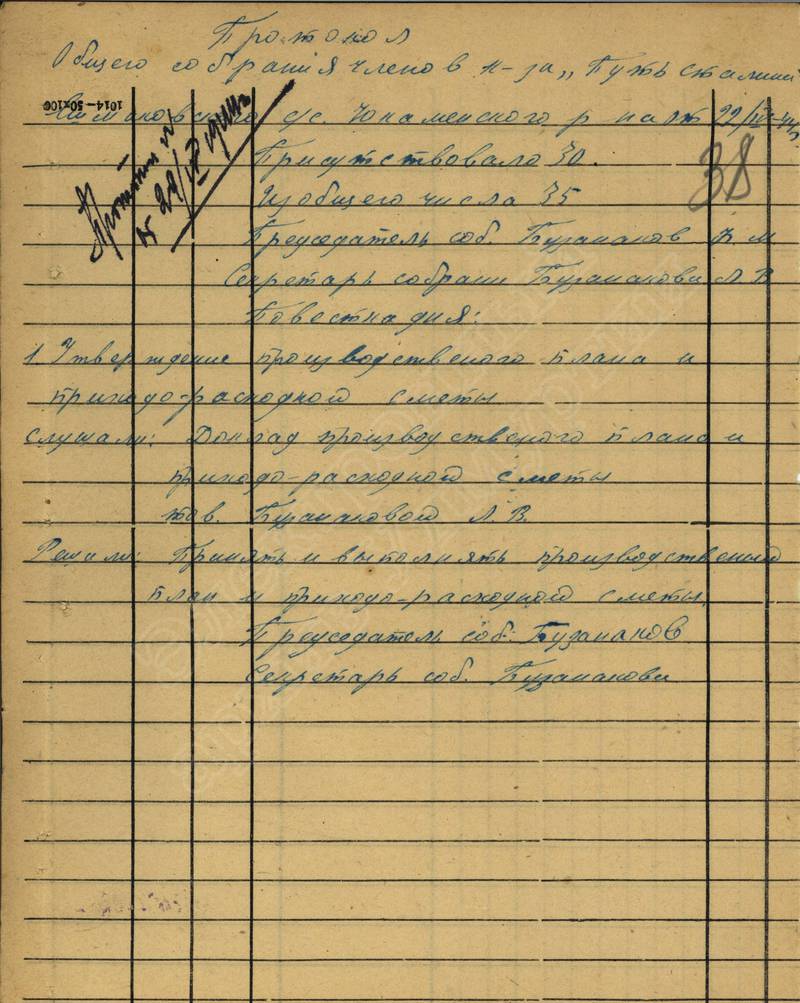 Протокол
Общего собрания членов к-за „Путь сталина"
с/с. Юкаменского р на от 22/IV-44г.
1014—50x100
Протокол №
от 22/IV 1944г
38
Присутствовало 30.
Из общего числа 35
Председатель соб. Бузанаков К М
Секретарь собрани Бузанакова Л В
Повестка дня:
1. Утверждение производственого плана и
приходо-расходной сметы
Слушали: Доклад производственого плана и
приходо-расходной сметы
тов. Бузанаковой Л. В.
Решили: Принять и выполнять производственый
план и приходо-расходной сметы.
Председатель соб: Бузанаков
Секретарь соб. Бузанакова